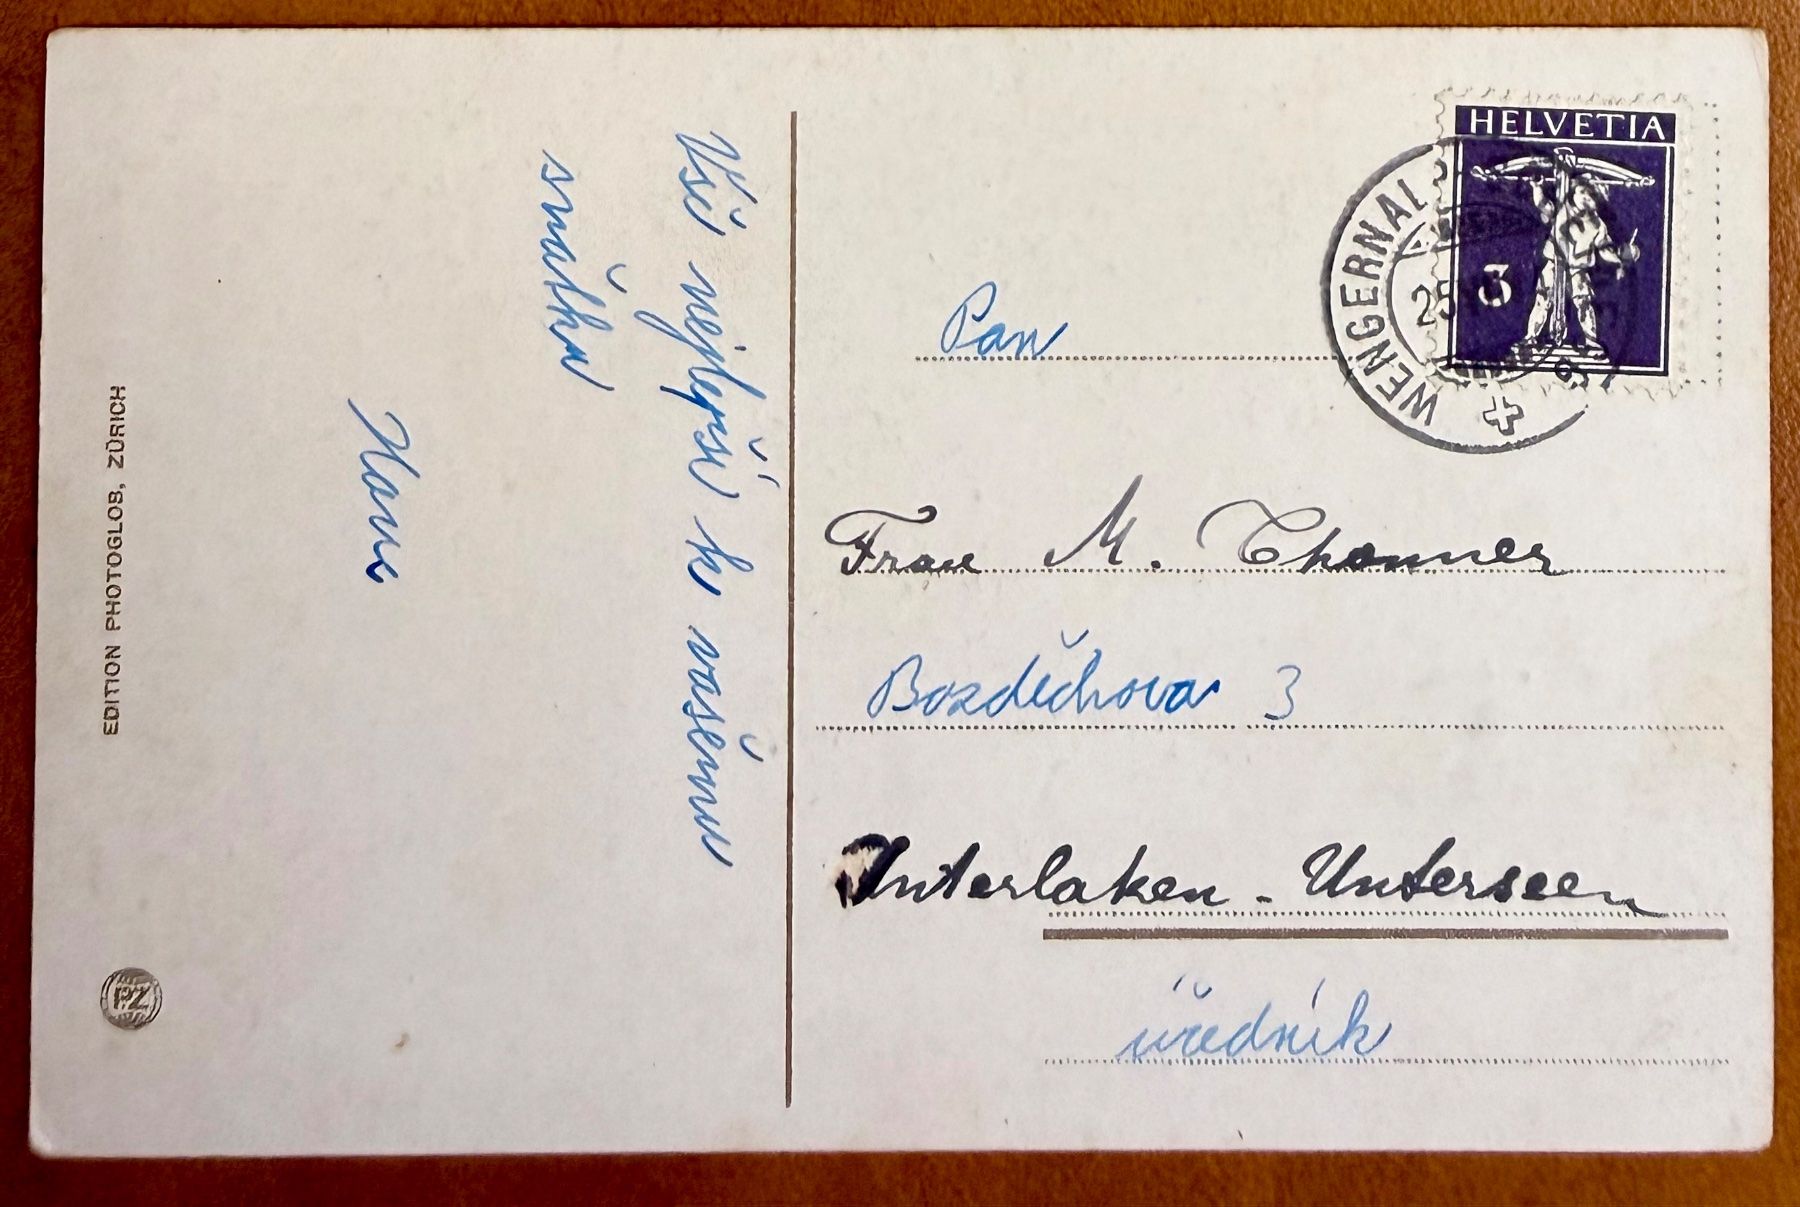 Vše nejlepší k vašemu
sňatku
Hana
EDITION PHOTOGLOS, ZÜRICH
PZ
HELVETIA
3
WENGERNAL
Pan
Frau M. Thommer
Bozděchova 3
Interlaken - Unterseen
úředník